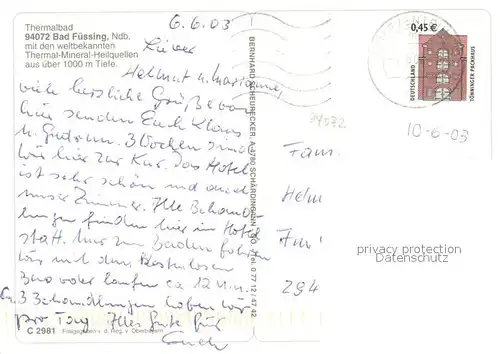 Thermalbad
94072 Bad Füssing, Ndb.
mit den weltbekannten
Thermal-Mineral-Heilquellen
aus über 1000 m Tiefe.
6.6.03
Liebe
Helmut u. Marianne
viele herzliche Grüße von
hier senden Euch Klaus
u. Gudrun. 3 Wochen sind
wir hier zur Kur. Das Hotel
ist sehr schön und auch
unser Zimmer. Alle Behand
lungen finden hier im Hotel
statt. Nur zum Baden fahren
wir mit dem kostenlosen
Bus oder laufen ca 12 Min.
3 Behandlungen haben wir
pro Tag. Alles Gute für
Euch
C 2981
BERNHARD SCHEURECKER, A-4780 SCHÄRDING/INN, Tel. 0 77 12 / 47 42
0,45 €
DEUTSCHLAND
TÖNNINGER PACKHAUS
94072
10-6-03
Fam.
Helm
Am
294
privacy protection
Datenschutz